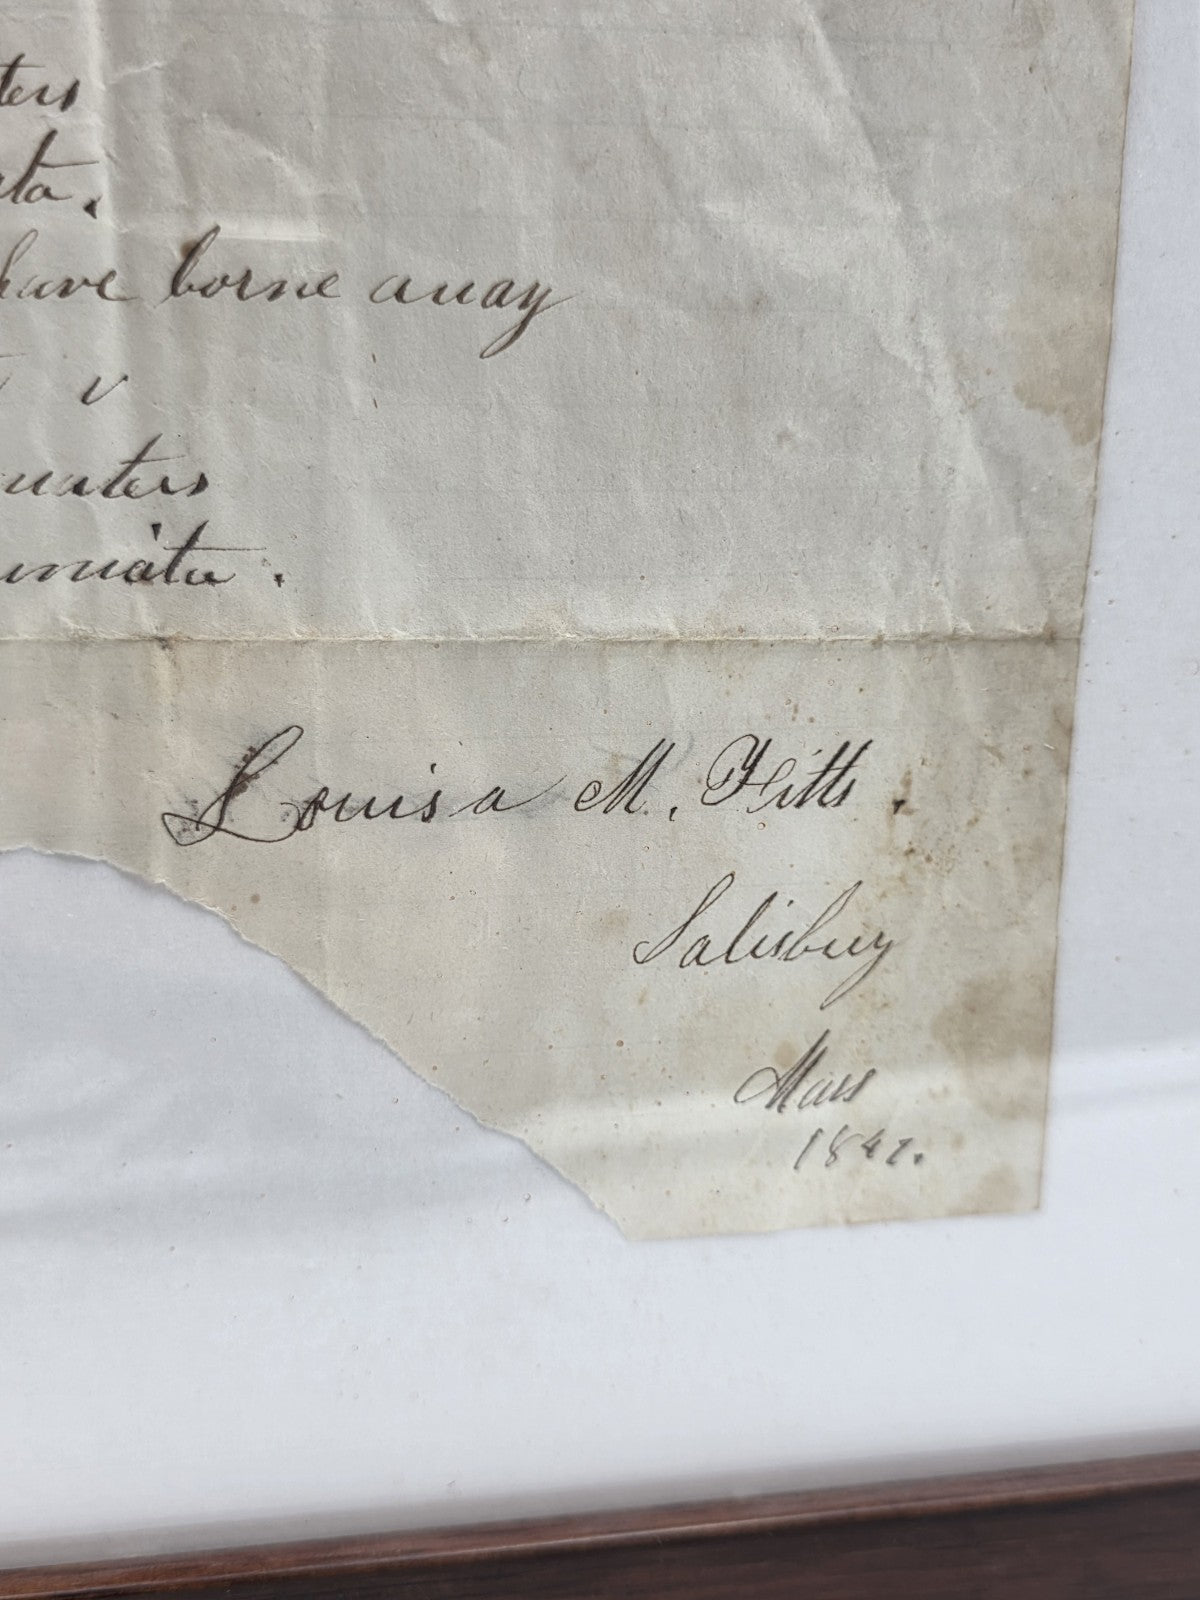 ters
ata.
have borne away
v
waters
uniata.
Louisa M. Fitts.
Salisbury
Mass
1847.